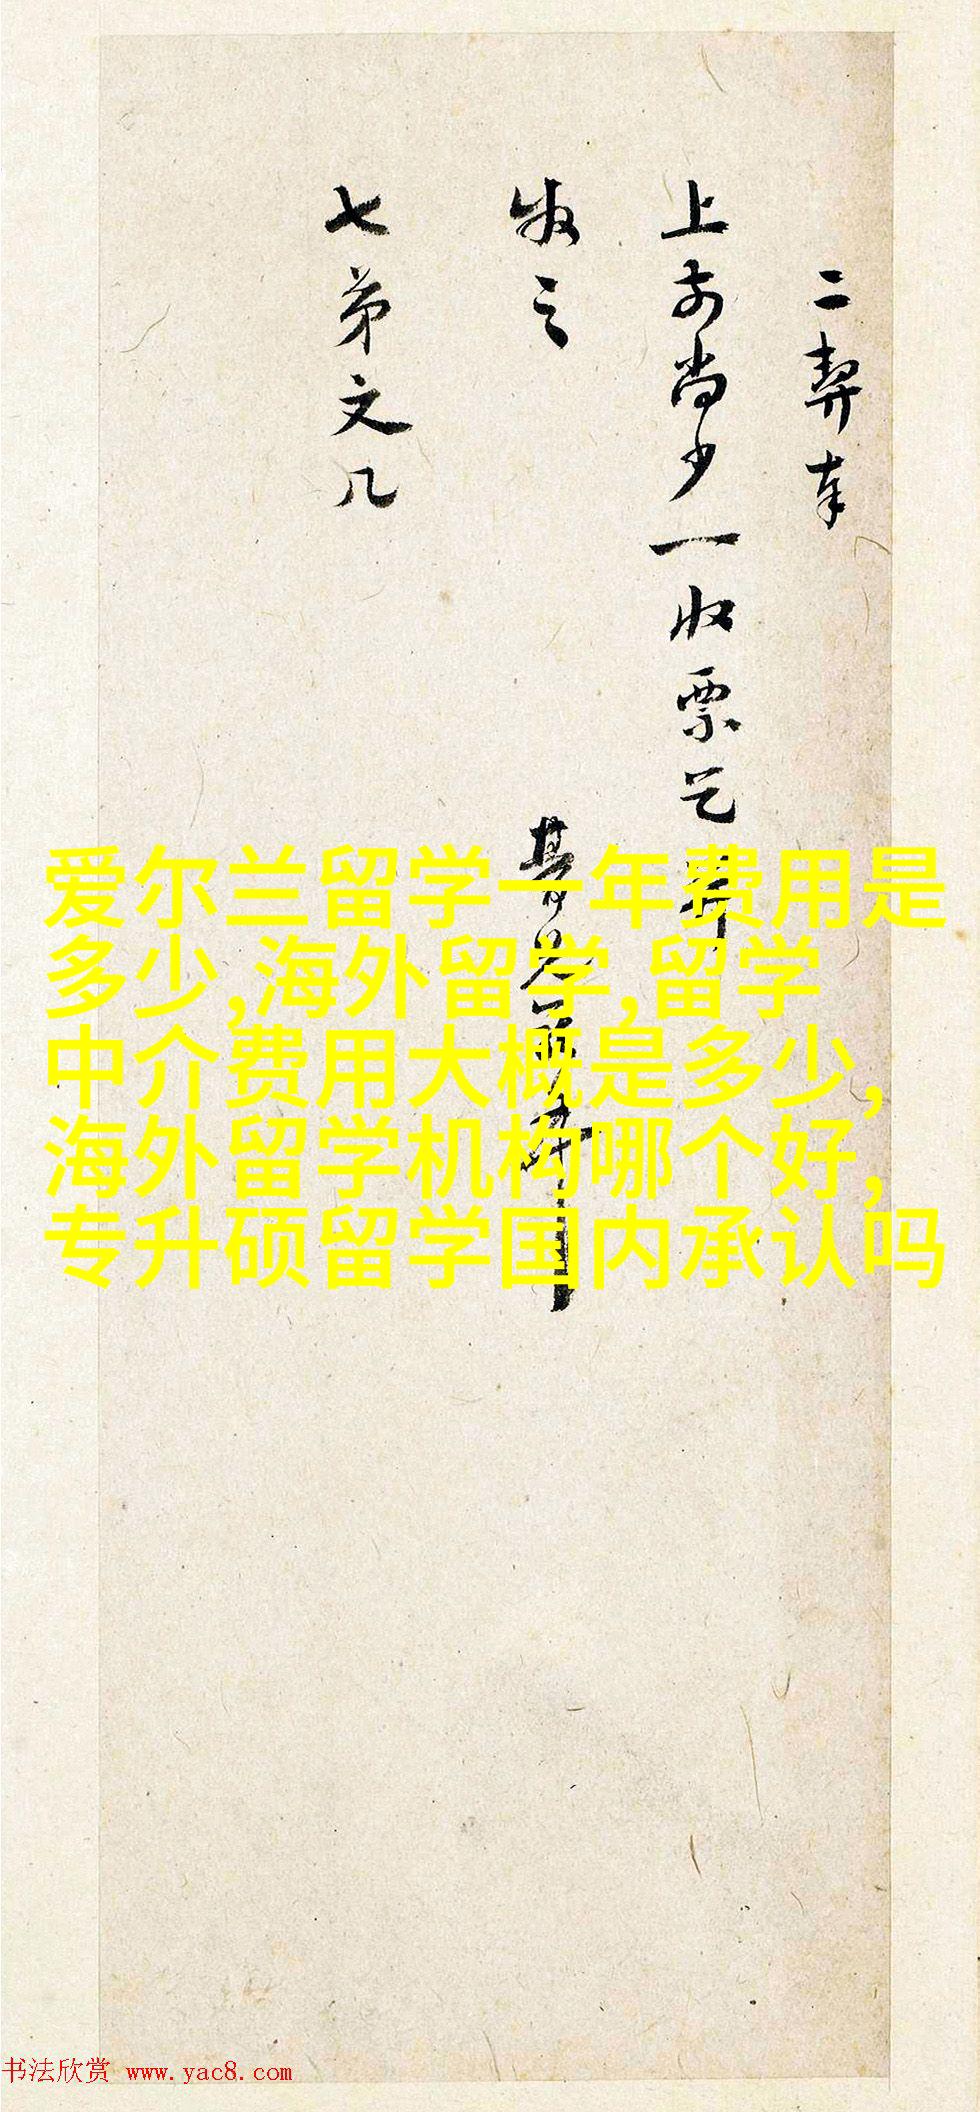 二契奉
上前尚少一收票乞
收之
七弟文几
爱尔兰留学一年费用是
多少,海外留学,留学
中介费用大概是多少,
海外留学机构哪个好,
专升硕留学国内承认吗
书法欣赏 www.yac8.com